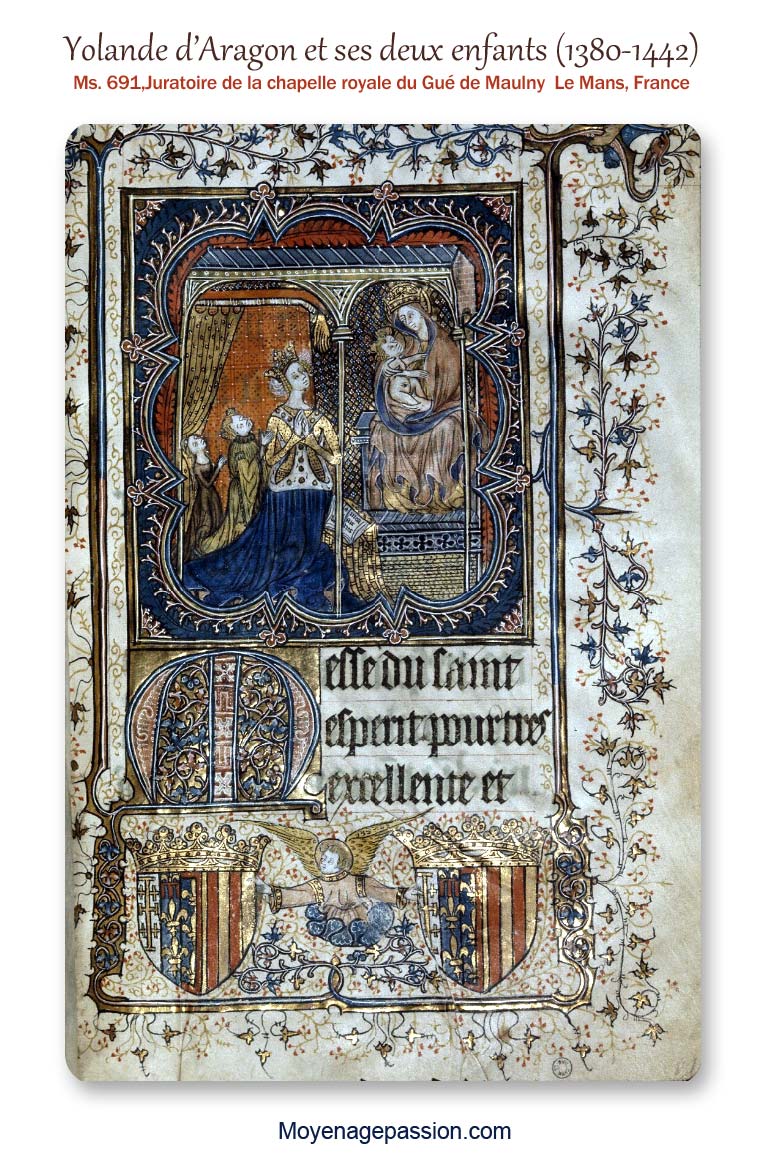 Yolande d'Aragon et ses deux enfants (1380-1442)
Ms. 691,Juratoire de la chapelle royale du Gué de Maulny Le Mans, France
Messe du saint
esperit pour tres
excellente et
Moyenagepassion.com